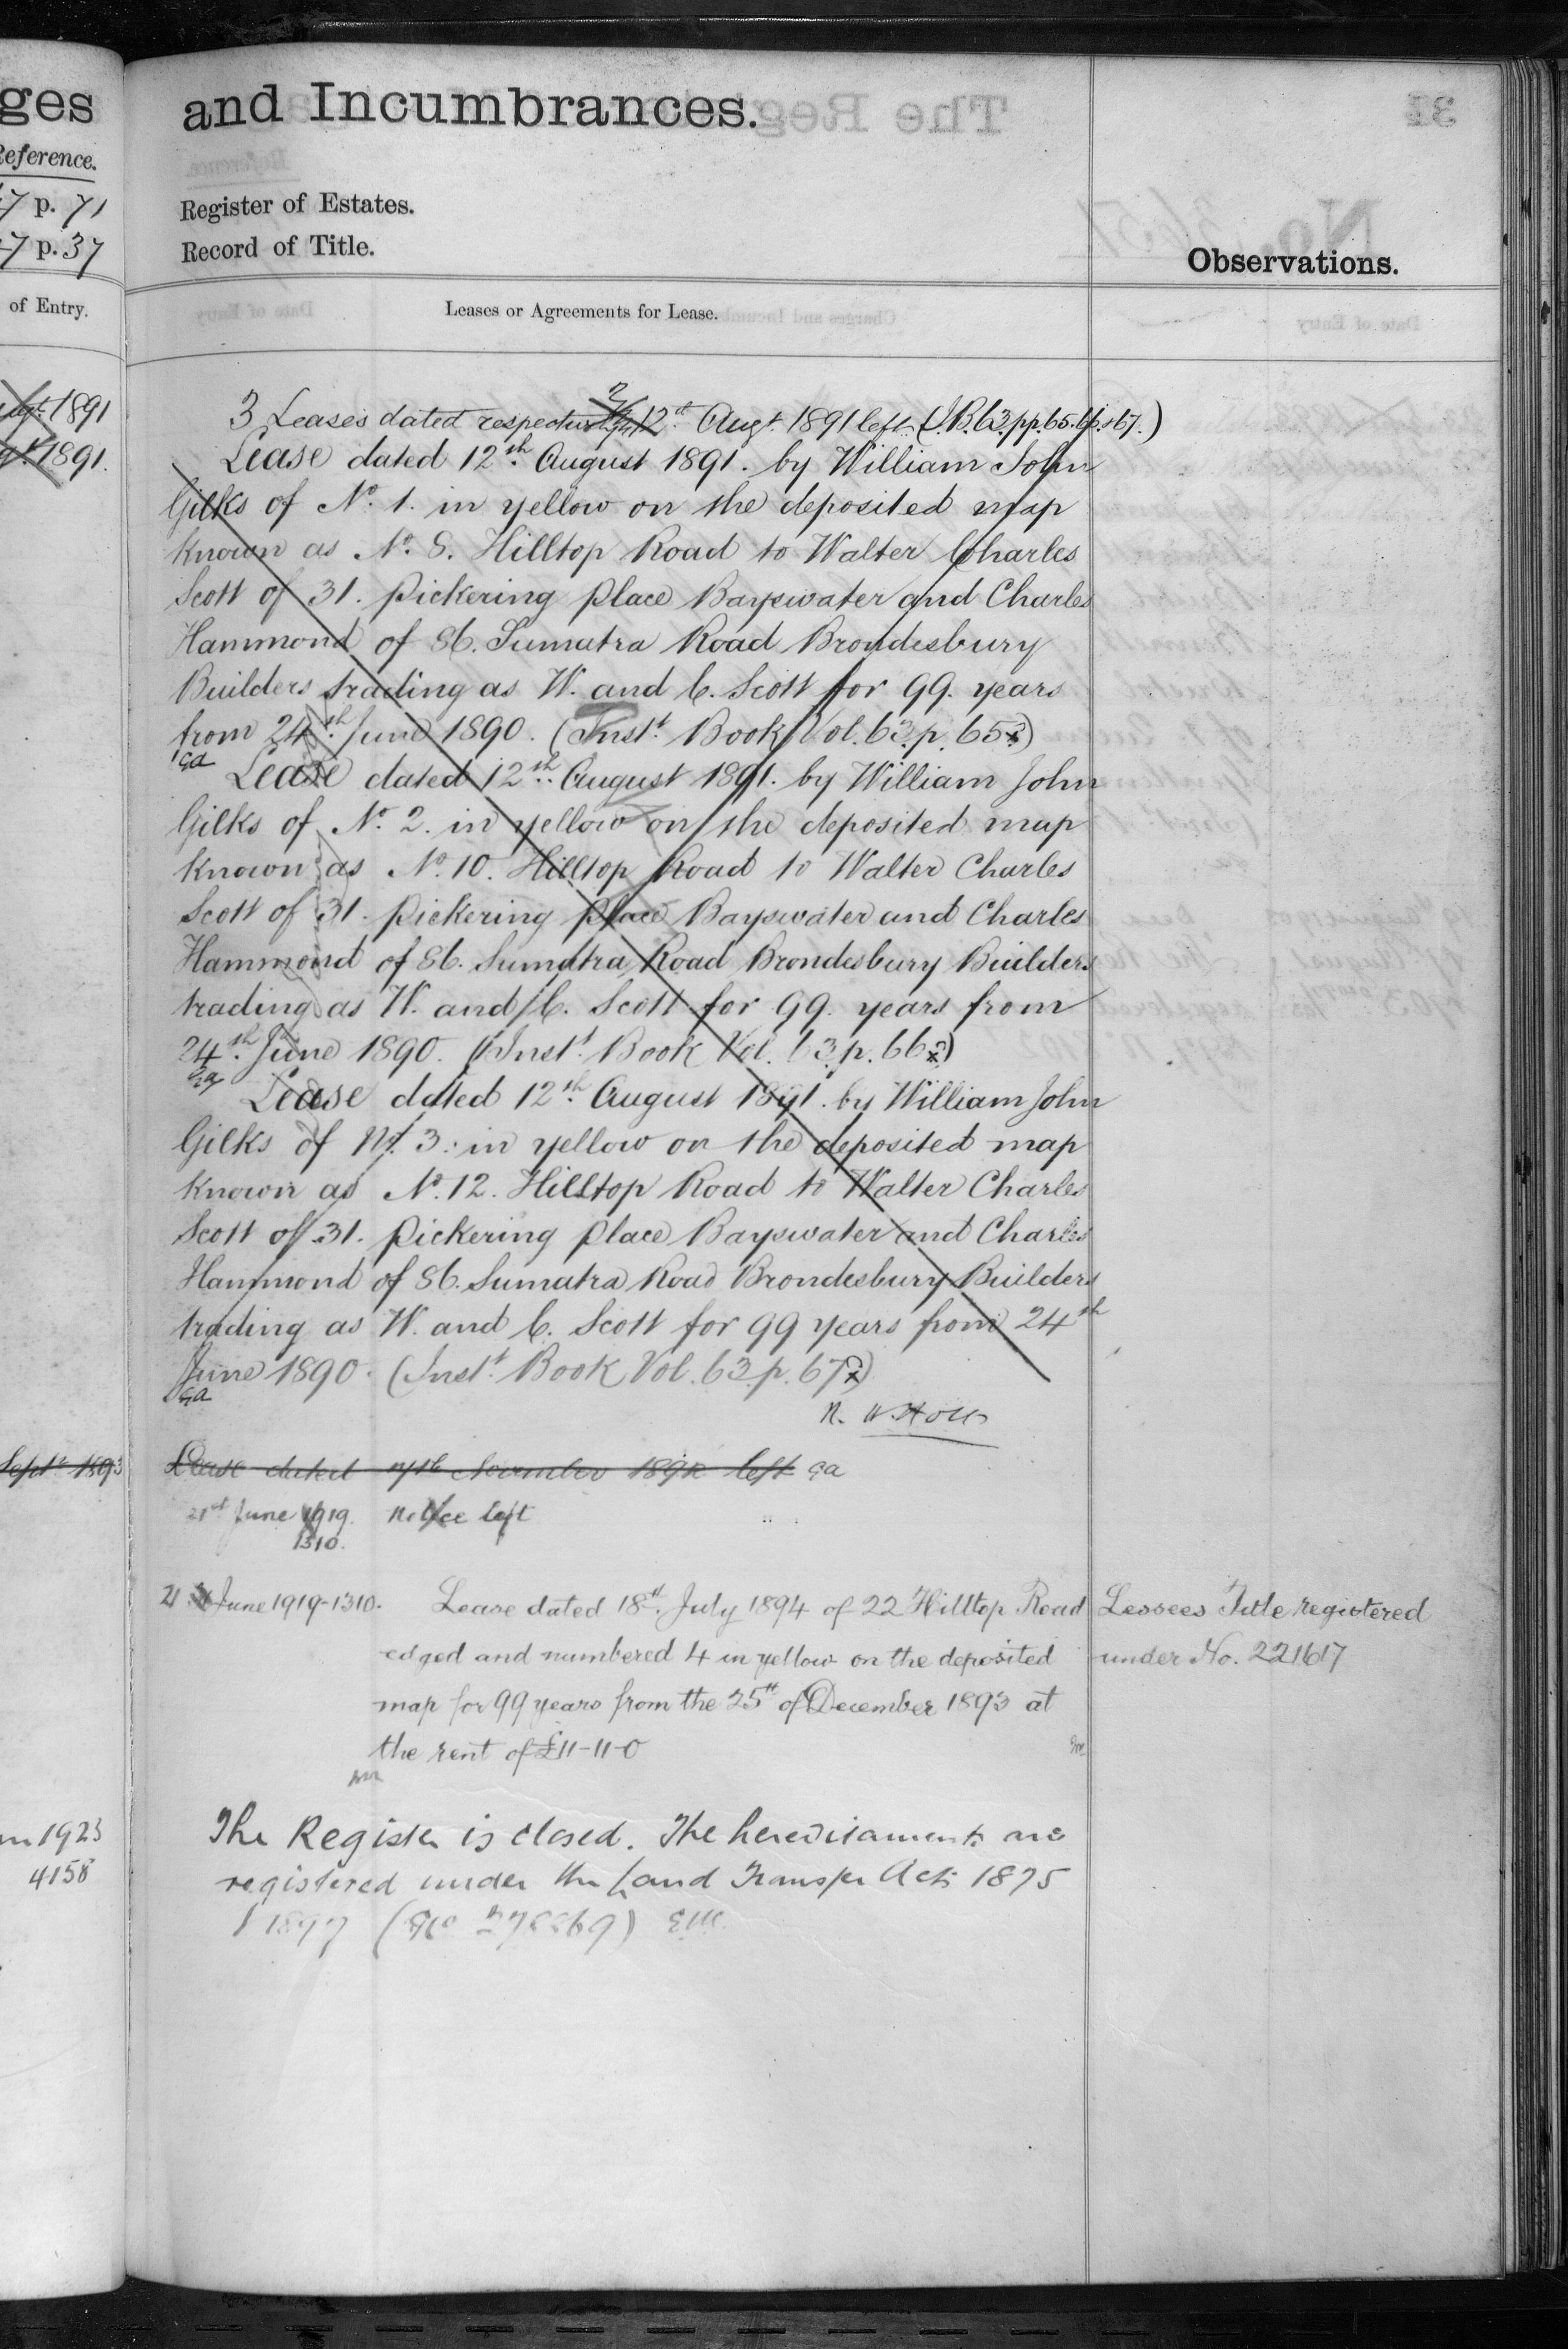 ges
Reference.
7 p. 71
7 p. 37
of Entry.
1891
1891.
Septr 1893
1923
4158
and Incumbrances.
Register of Estates.
Record of Title.
Observations.
Leases or Agreements for Lease.
3 Leases dated 12th Augt. 1891 left. (I.B. 63. pp. 65. 66. & 67.)
Lease dated 12th August 1891. by William John
Gilks of No. 1. in yellow on the deposited map
known as No. 8. Hilltop Road to Walter Charles
Scott of 31. Pickering Place Bayswater and Charles
Hammond of 86. Sumatra Road Brondesbury
Builders trading as W. and C. Scott for 99. years
from 24th June 1890. (Inst. Book Vol. 63. p. 65.)
ga
Lease dated 12th August 1891. by William John
Gilks of No. 2. in yellow on the deposited map
known as No. 10. Hilltop Road to Walter Charles
Scott of 31. Pickering Place Bayswater and Charles
Hammond of 86. Sumatra Road Brondesbury Builders
trading as W. and C. Scott for 99 years from
24th June 1890. (Inst. Book Vol. 63. p. 66.)
ga
Lease dated 12th August 1891. by William John
Gilks of No. 3. in yellow on the deposited map
known as No. 12. Hilltop Road to Walter Charles
Scott of 31. Pickering Place Bayswater and Charles
Hammond of 86. Sumatra Road Brondesbury Builders
trading as W. and C. Scott for 99 years from 24th
June 1890. (Inst. Book Vol. 63. p. 67.)
ga
Lease dated November left ga
21st June 1919. Notice left
1310.
21 June 1919-1310. Lease dated 18th July 1894 of 22 Hilltop Road
Lessees Title registered
edged and numbered 4 in yellow on the deposited
under No. 221617
map for 99 years from the 25th of December 1893 at
the rent of £11-11-0
The Register is closed. The hereditaments are
registered under the Land Transfer Acts 1875
& 1897